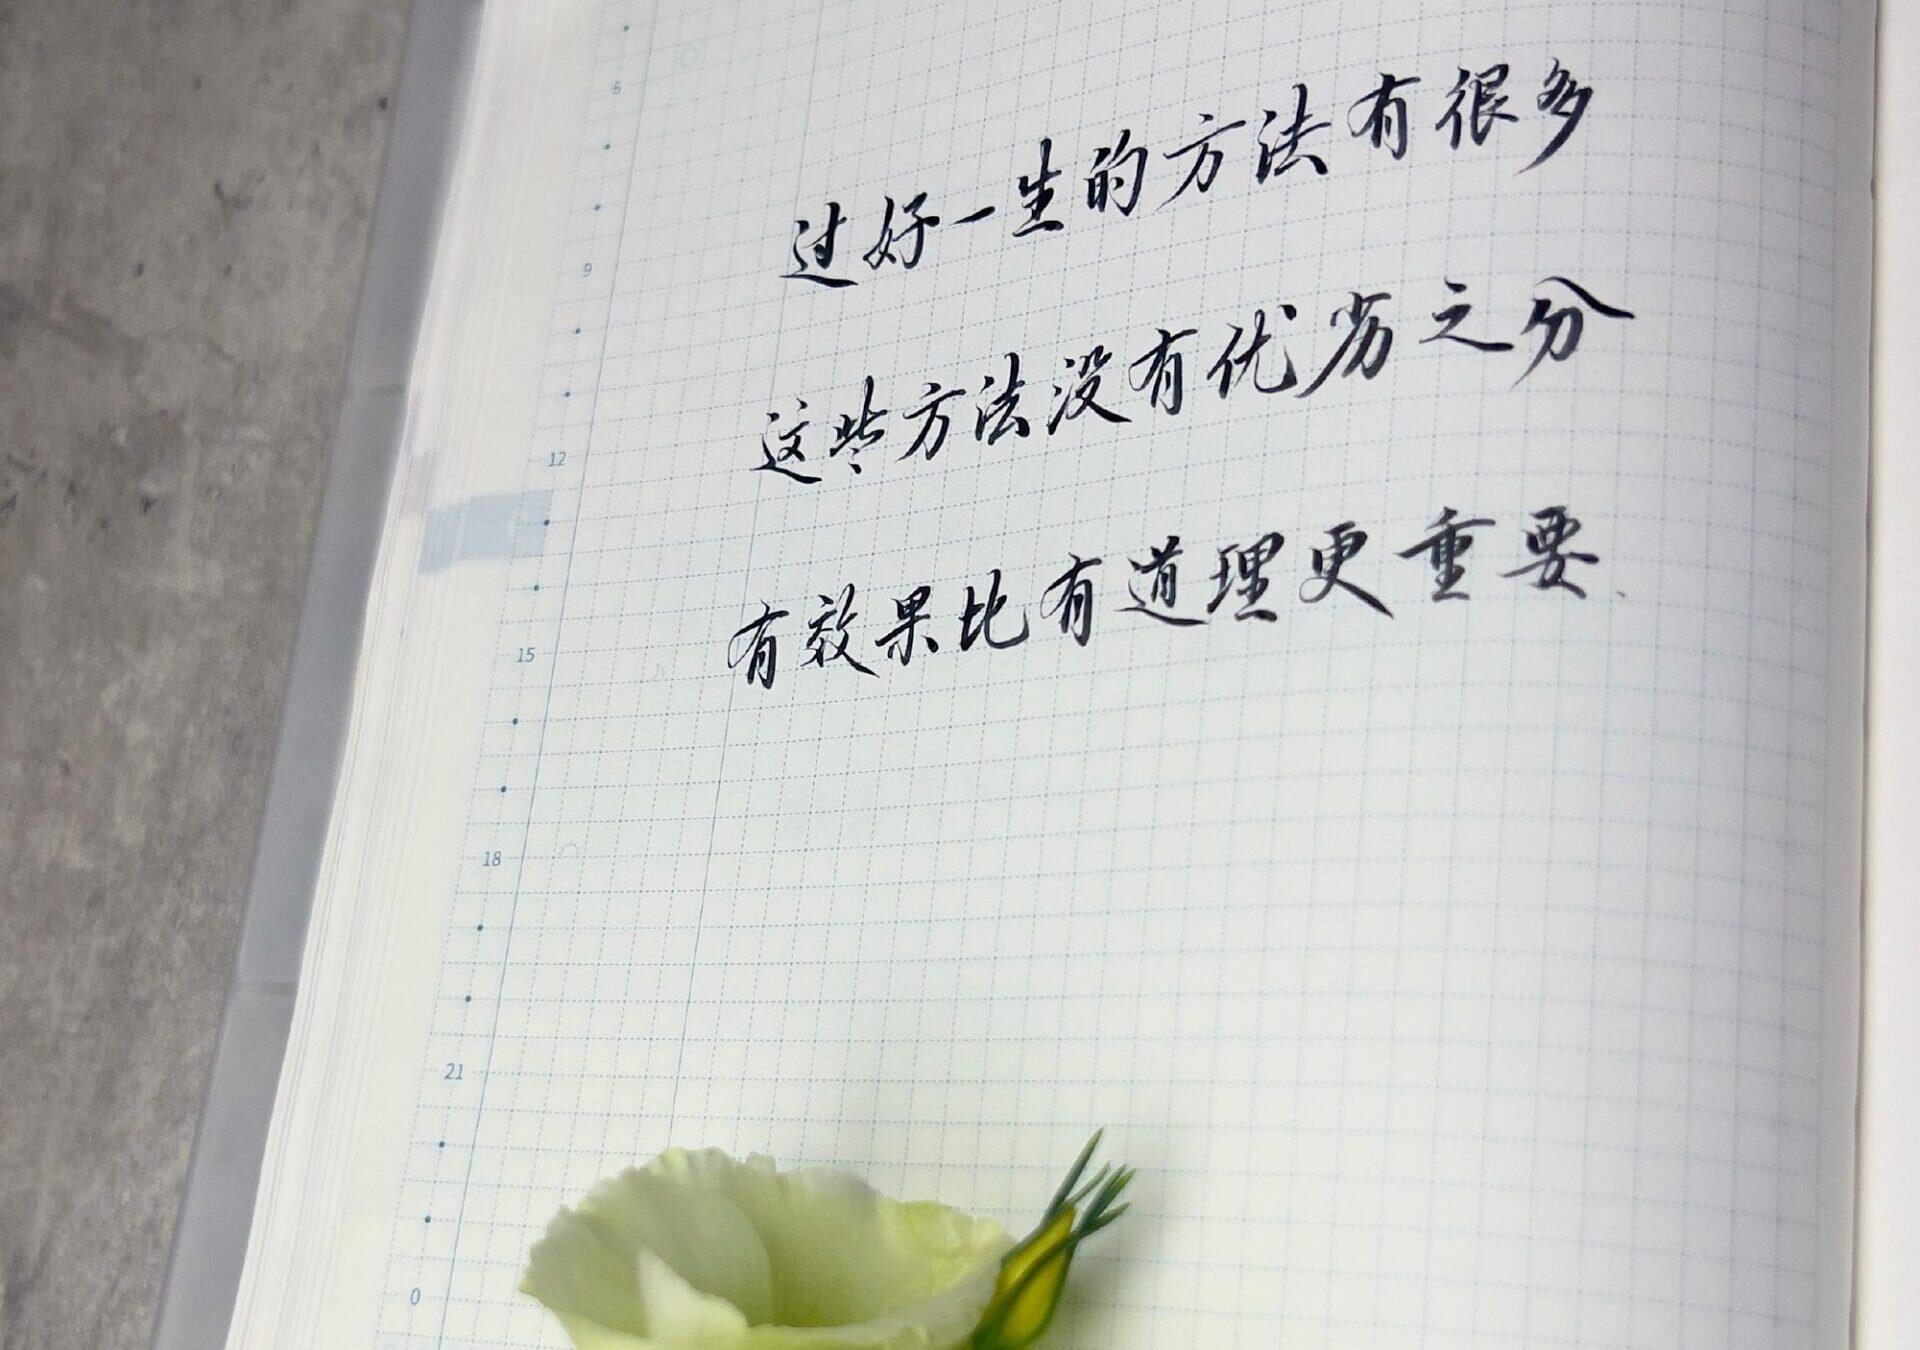 过好一生的方法有很多
这些方法没有优劣之分
有效果比有道理更重要、
6
9
12
15
18
21
0